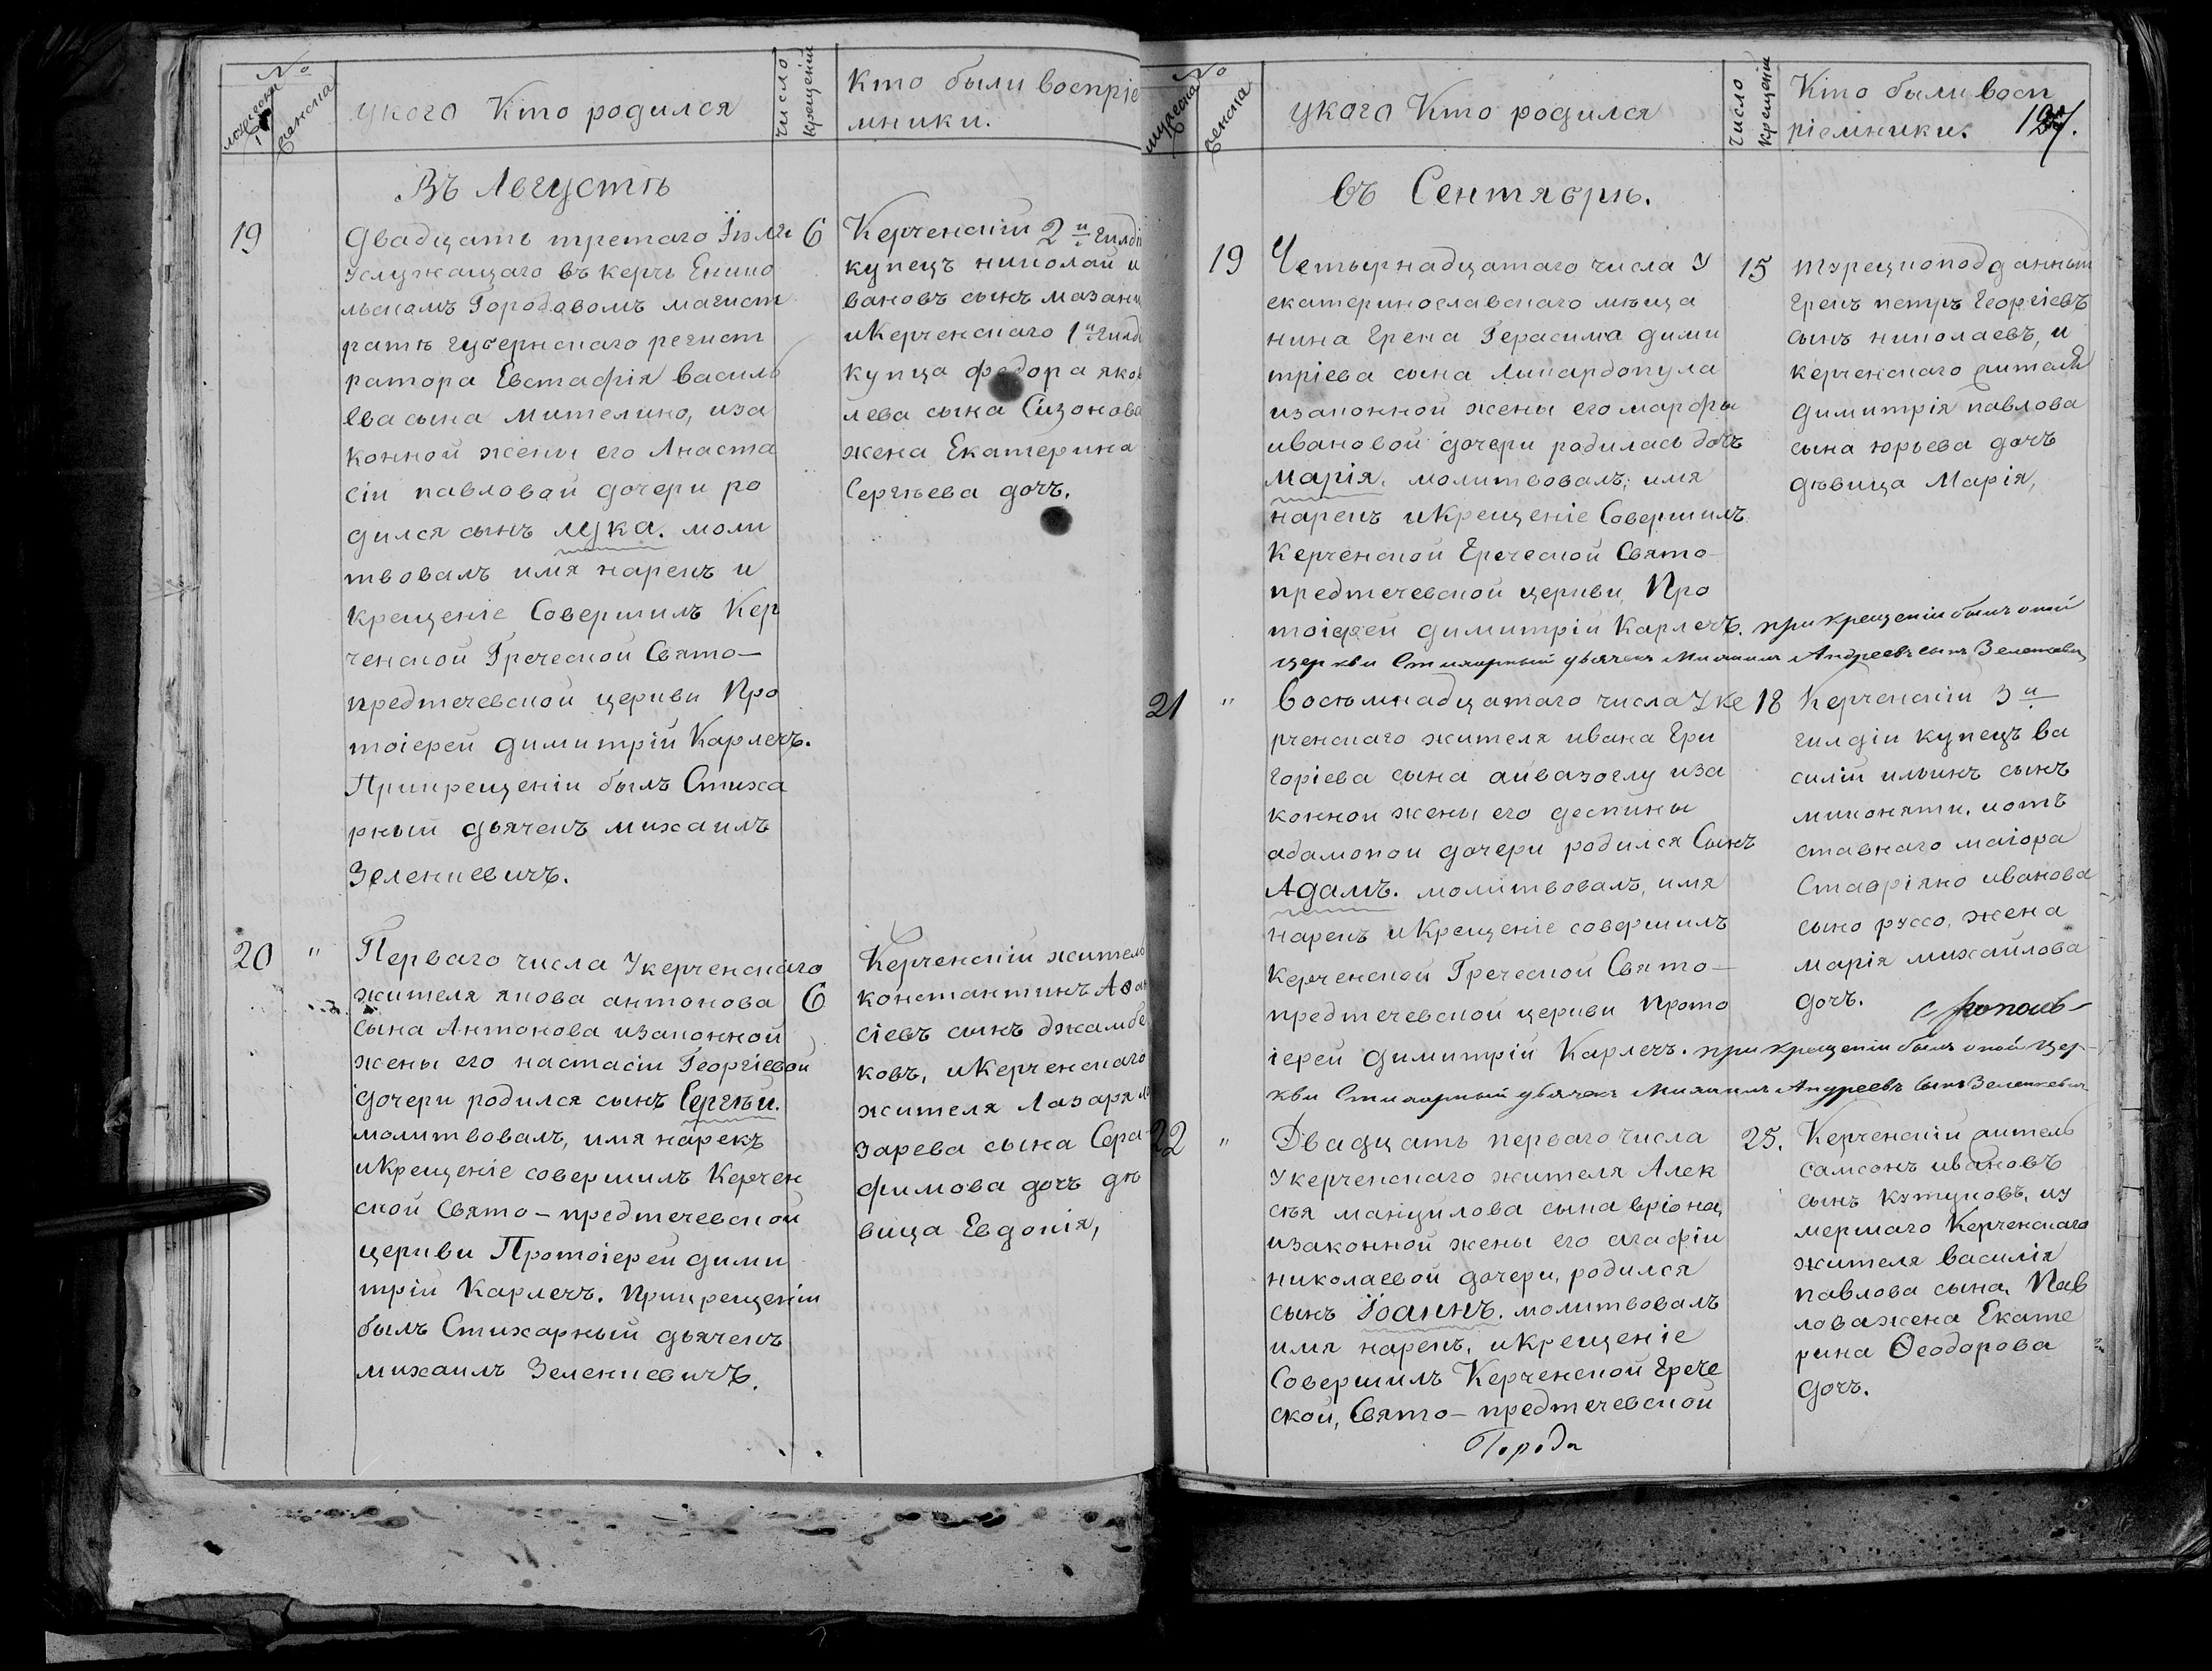 №
мужеска
женска
укого Кто родился
число крещенія
Кто были воспріе
мники.
Въ Августѣ
19
Двадцать третаго Іюля
услужащаго въ керчь Енико
льскомъ Городовомъ магист
ратѣ губернскаго регист
ратора Евстафія василь
ева сына мителино, иза
конной жены его Анаста
сіи павловой дочери ро
дился сынъ лука. моли
твовалъ имя нарекъ и
крещеніе Совершилъ Кер
ченской Греческой Свято–
предтечевской церкви Про
тоіерей димитрій Карлечъ.
Прикрещеніи былъ Стиха
рный дьячекъ михаилъ
Зеленкевичъ.
6
Керченскій 2й гилді
купецъ николай и
вановъ сынъ мазани
икерченскаго 1й гилд
купца федора яков
лева сына Сизонова
жена Екатерина
Сергѣева дочъ.
20 "
Перваго числа укерченскаго
жителя якова антонова
сына Антонова изаконной
жены его настасіи Георгіевой
дочери родился сынъ Сергѣй.
молитвовалъ, имя нарекъ
икрещеніе совершилъ Керчен
ской Свято–предтечевской
церкви Протоіерей дими
трій Карлечъ. Прикрещеніи
былъ Стихарный дьячекъ
михаилъ Зеленкевичъ.
6
Керченскій житель
константинъ
сіевъ сынъ джамбе
ковъ, икерченскаго
жителя Лазаря ла
зарева сына Сера
фимова дочъ дѣ
вица Евдокія,
№
мужеска
женска
укого Кто родился
число крещенія
Кто были восп
ріемники.
въ Сентябрѣ.
19
Четырнадцатаго числа у
екатеринославскаго мѣща
нина Грека Герасима дими
тріева сына Ликардопула
изаконной жены его марфы
ивановой дочери родилась дочъ
марія. молитвовалъ, имя
нарекъ икрещеніе Совершилъ
Керченской Греческой Свято–
предтечевской церкви Про
тоіерей димитрій Карлечъ. при крещеніи былъ оной
церкви Стихарный дьячекъ Михаилъ Андреевъ сынъ Зеленкевичъ
15
турецкоподданный
Грекъ петръ Георгіевъ
сынъ николаевъ, и
керченскаго жителя
димитрія павлова
сына юрьева дочъ
дѣвица Марія,
21 "
Восѣмнадцатаго числа Уке
рченскаго жителя ивана Гри
горіева сына айвазоглу иза
конной жены его деспины
адамовой дочери родился Сынъ
Адамъ. молитвовалъ, имя
нарекъ икрещеніе совершилъ
Керченской Греческой Свято–
предтечевской церкви прото
іерей димитрій Карлечъ. при крещеніи былъ оной цер–
кви Стихарный дьячекъ Михаилъ Андреевъ сынъ Зеленкевичъ
18
Керченскій 3й
гилдіи купецъ ва
силій ильинъ сынъ
миконяти, иотъ
ставнаго маіора
Ставріяно иванова
сына руссо, жена
марія михайлова
дочъ.
22 "
Двадцать перваго числа
укерченскаго жителя Алек
сѣя мануилова сына вріона,
изаконной жены его агафіи
николаевой дочери, родился
сынъ Іоаннъ. молитвовалъ
имя нарекъ, икрещеніе
Совершилъ Керченской Грече
ской, Свято–предтечевской
Города
25.
Керченскій житель
самсонъ ивановъ
сынъ кутуковъ, иу
мершаго Керченскаго
жителя василія
павлова сына, Пав
лова жена Екате
рина Ѳеодорова
дочъ.